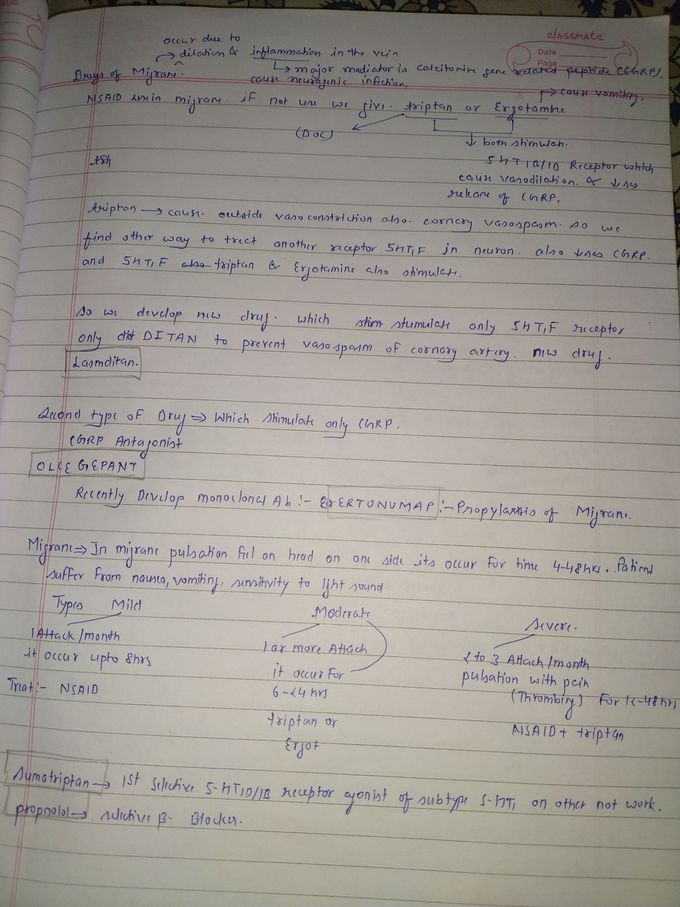 classmate
Date
Page
occur due to
→ dilation & inflammation in the vein
Drugs of Migran. → major mediator is calcitonine gene related peptide (CGRP).
cause neurogenic infection.
→ cause vomiting.
NSAID use in migrane. if not use we give. triptan or Ergotamine
(DOC)
↓ both stimulate.
5HT1B/1D Receptor which
cause vasodilation. &
release of CGRP.
triptan → cause. outside vasoconstriction also. cornary vasospasm. so we
find other way to trect another receptor 5HT1F in neuron. also CGRP.
and 5HT1F also triptan & Ergotamine also stimulate.
So we develop new drug. which stim stumulate only 5HT1F receptor
only DITAN to prevent vasospasm of cornary artery. new drug.
Lasmditan.
Second type of Drug ⇒ Which stimulate only CGRP.
CGRP Antagonist
OLCEGEPANT
Recently Develop monoclonal Ab :- ERTUNUMAP :- Propylaxsis of Migrane.
Migrane ⇒ In migrane pulsation feel on head on one side its occur for time 4-48hrs. Patient
suffer from nausea, vomiting, sensitivity to light sound
Types Mild Moderate Severe.
1 Attack/month
it occur upto 8hrs
Treat:- NSAID
1 or more Attach
it occur for
6-24 hrs
triptan or
Ergot
2 to 3 Attach/month
pulsation with pain
(Thrombing) for 12-48hrs
NSAID + triptan
Sumatriptan → 1st selective 5-HT1D/1B receptor agonist of subtype 5-HT1 on other not work.
propnolol → selective β- Blocker.